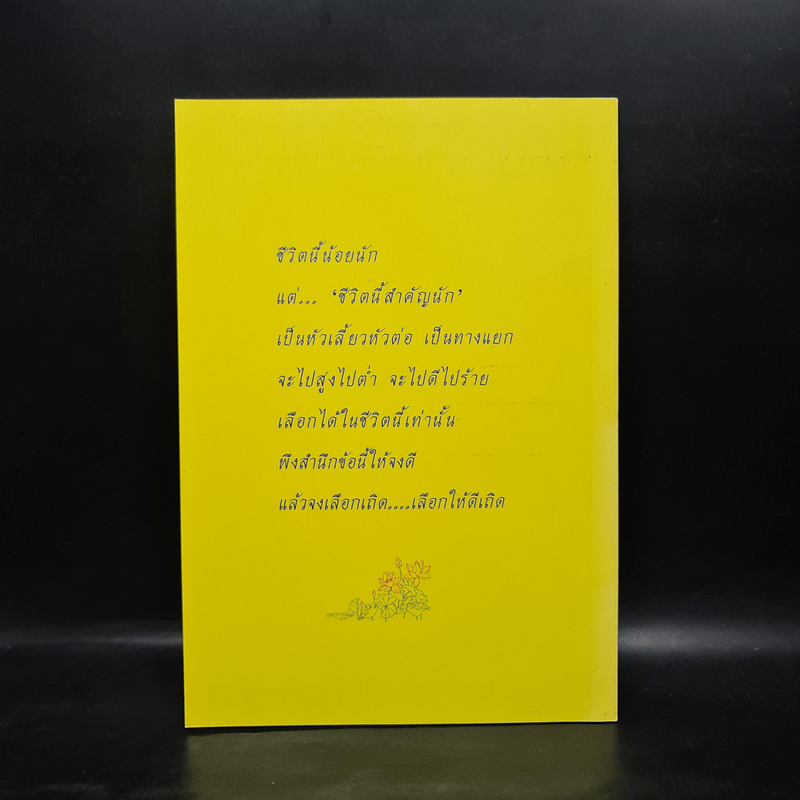 ชีวิตนี้น้อยนัก
แต่... ‘ชีวิตนี้สำคัญนัก’
เป็นหัวเลี้ยวหัวต่อ เป็นทางแยก
จะไปสูงไปต่ำ จะไปดีไปร้าย
เลือกได้ในชีวิตนี้เท่านั้น
พึงสำนึกข้อนี้ให้จงดี
แล้วจงเลือกเถิด....เลือกให้ดีเถิด